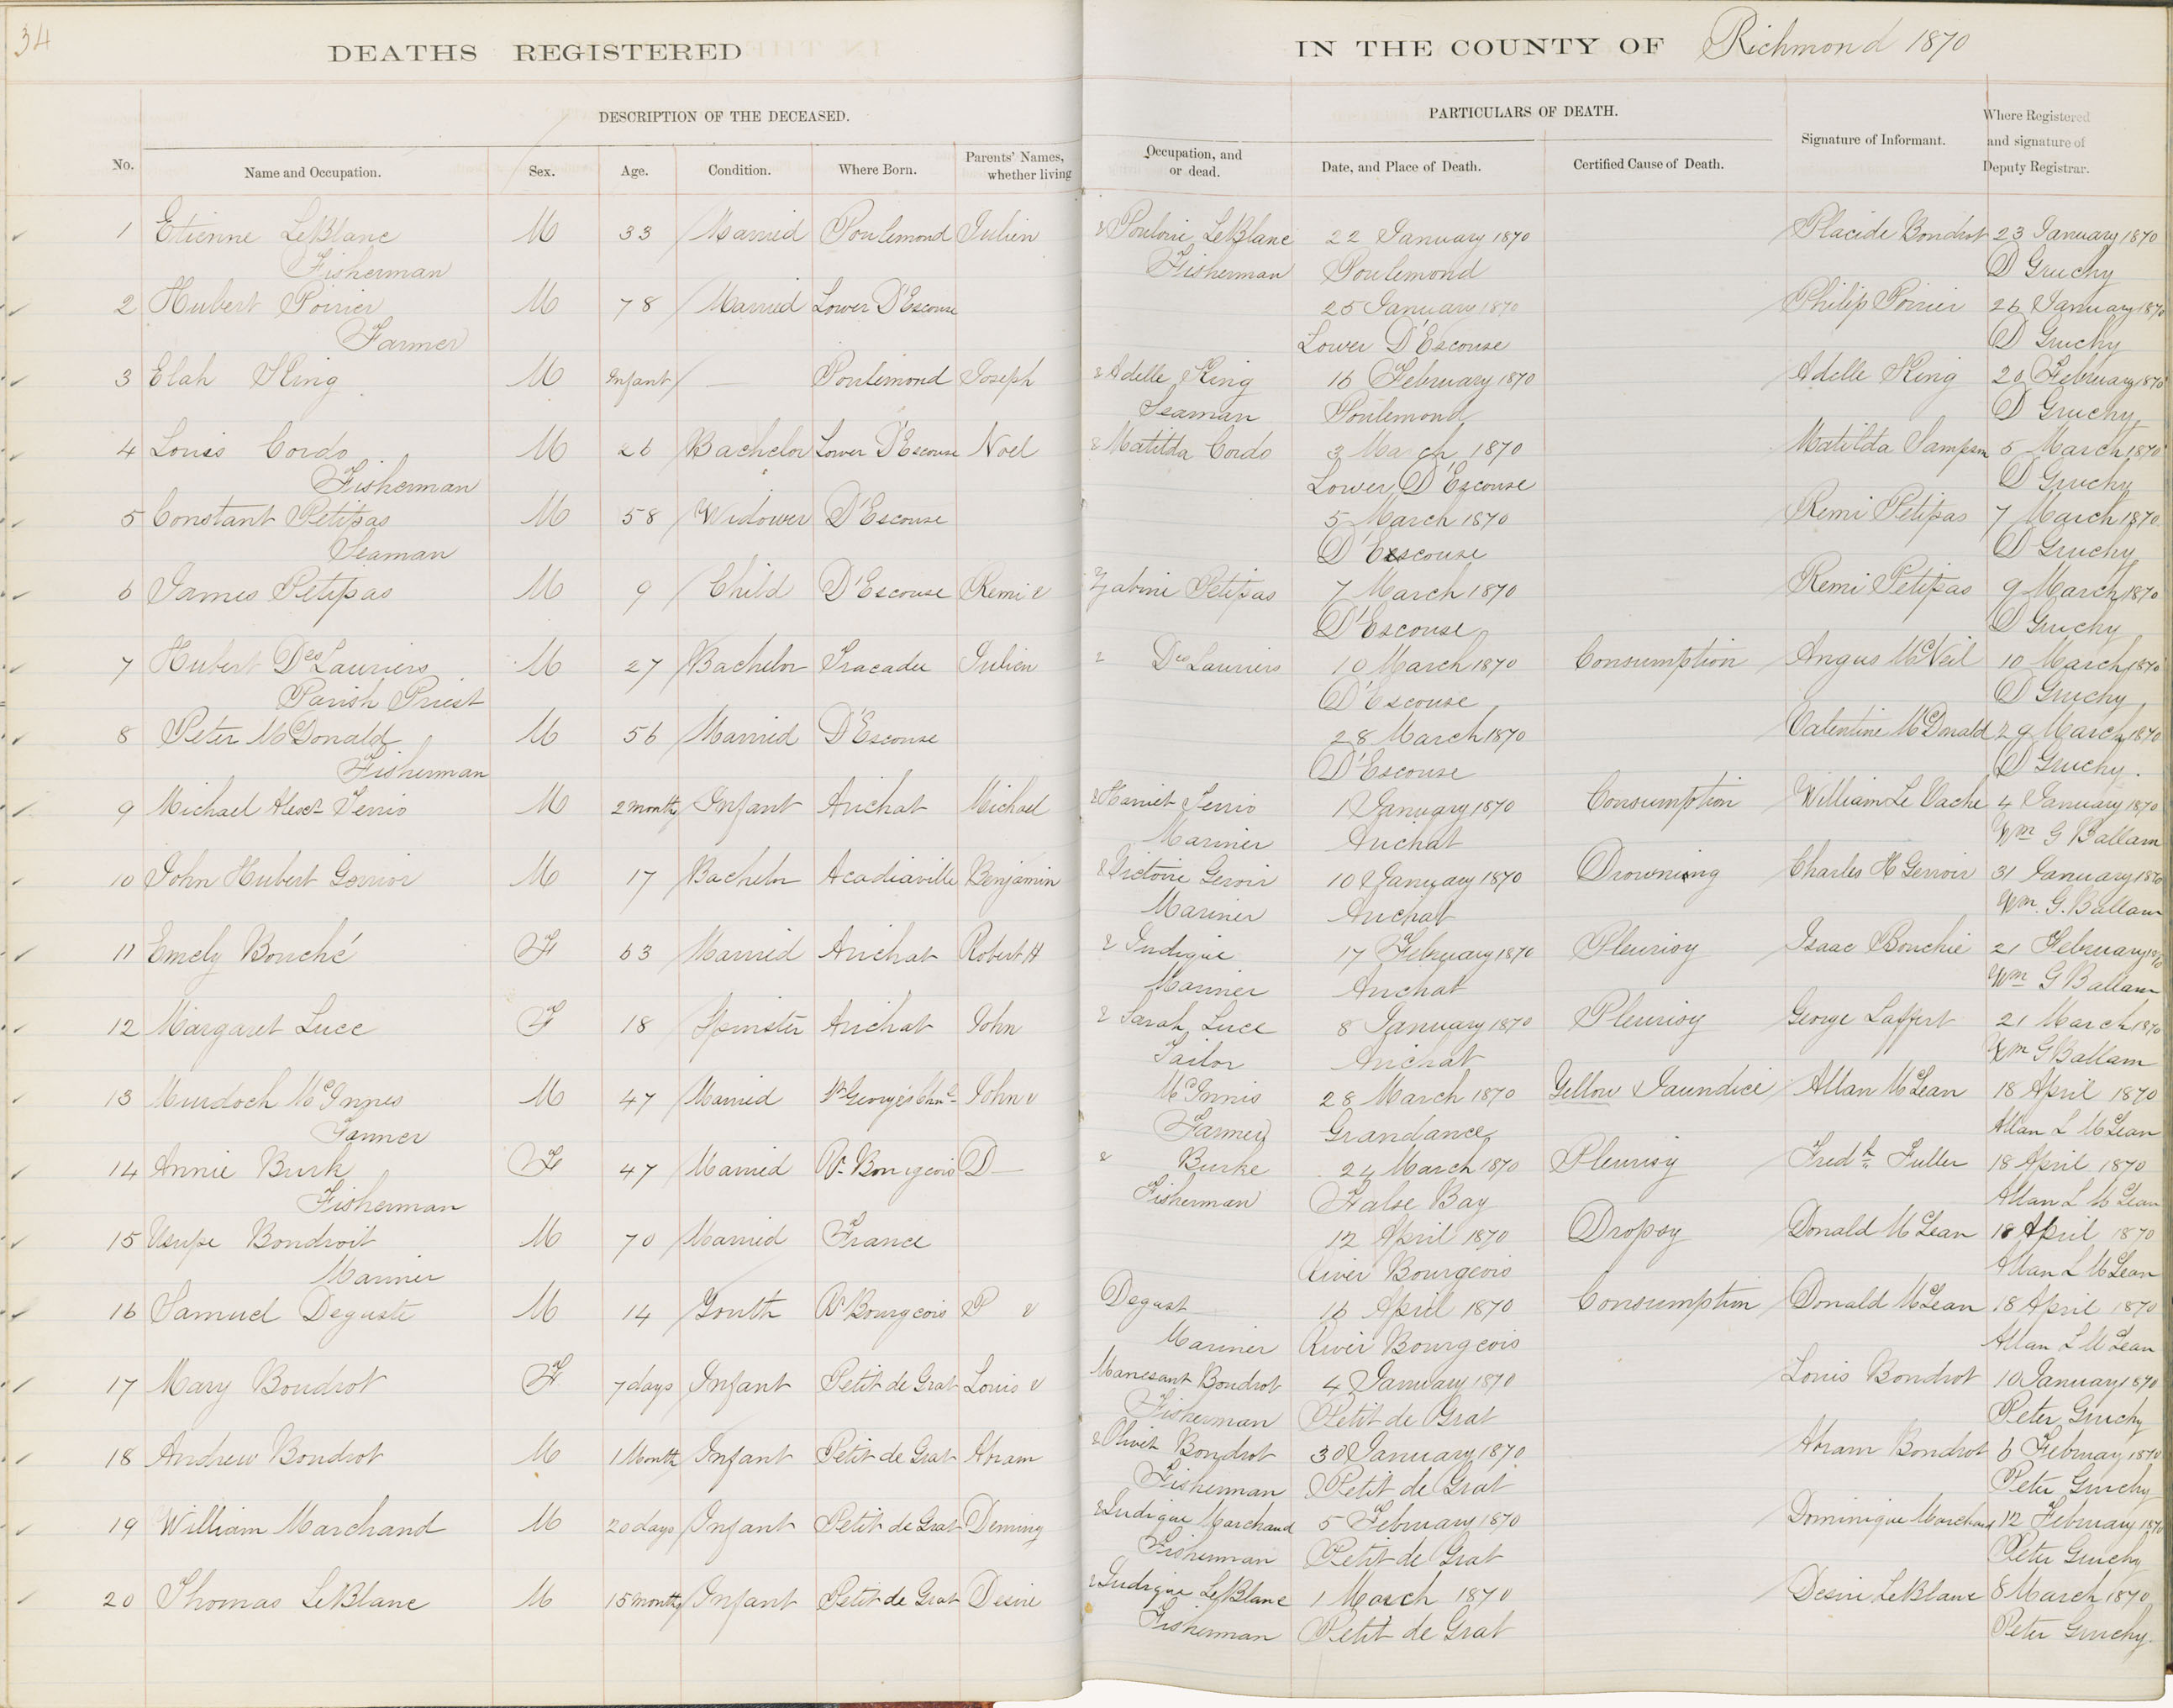 34
DEATHS REGISTERED IN THE COUNTY OF Richmond 1870
DESCRIPTION OF THE DECEASED. PARTICULARS OF DEATH.
No. Name and Occupation. Sex. Age. Condition. Where Born. Parents' Names, whether living Occupation, and or dead. Date, and Place of Death. Certified Cause of Death. Signature of Informant. Where Registered and signature of Deputy Registrar.
1 Etienne LeBlanc M 33 Married Poulemond Julien & Poulorie LeBlanc 22 January 1870 Placide Boudrot 23 January 1870
Fisherman Fisherman Poulemond D Gruchy
2 Hubert Poirier M 78 Married Lower D'Escouse 25 January 1870 Philip Poirier 26 January 1870
Farmer Lower D'Escouse D Gruchy
3 Elah King M Infant — Poulemond Joseph & Adelle King 16 February 1870 Adelle King 20 February 1870
Seaman Poulemond D Gruchy
4 Louis Cordo M 26 Bachelor Lower D'Escouse Noel & Matilda Cordo 3 March 1870 Matilda Sampson 5 March 1870
Fisherman Lower D'Escouse D Gruchy
5 Constant Petipas M 58 Widower D'Escouse 5 March 1870 Remi Petipas 7 March 1870
Seaman D'Escouse D Gruchy
6 James Petipas M 9 Child D'Escouse Remi & Zabine Petipas 7 March 1870 Remi Petipas 9 March 1870
D'Escouse D Gruchy
7 Hubert DesLauriers M 27 Bachelor Tracadie Julien & DesLauriers 10 March 1870 Consumption Angus McNeil 10 March 1870
Parish Priest D'Escouse D Gruchy
8 Peter McDonald M 56 Married D'Escouse 28 March 1870 Valentine McDonald 29 March 1870
Fisherman D'Escouse D Gruchy.
9 Michael Alexr Terrio M 2 months Infant Arichat Michael & Harriet Terrio 1 January 1870 Consumption William Le Vache 4 January 1870
Mariner Arichat Wm G Ballam
10 John Hubert Gerrior M 17 Bachelor Acadiaville Benjamin & Victoire Geroir 10 January 1870 Drowning Charles H Gerroir 31 January 1870
Mariner Arichat Wm. G. Ballam
11 Emely Bouché F 63 Married Arichat Robert H & Judique 17 February 1870 Pleurisy Isaac Bouchie 21 February 1870
Mariner Arichat Wm G Ballam
12 Margaret Luce F 18 Spinster Arichat John & Sarah Luce 8 January 1870 Pleurisy George Laffert 21 March 1870
Tailor Arichat Wm G Ballam
13 Murdoch McInnes M 47 Married St George's Chnl John & McInnis 28 March 1870 Yellow Jaundice Allan McLean 18 April 1870
Farmer Farmer Grandance Allan L McLean
14 Annie Burk F 47 Married R. Bourgeois D— & Burke 24 March 1870 Pleurisy Fredk Fuller 18 April 1870
Fisherman Fisherman False Bay Allan L McLean
15 Usupe Boudroit M 70 Married France 12 April 1870 Dropsy Donald McLean 18 April 1870
Mariner River Bourgeois Allan L McLean
16 Samuel Deguste M 14 Youth R Bourgeois P & Degust 16 April 1870 Consumption Donald McLean 18 April 1870
Mariner River Bourgeois Allan L McLean
17 Mary Boudrot F 7 days Infant Petit de Grat Louis & Manesant Boudrot 4 January 1870 Louis Boudrot 10 January 1870
Fisherman Petit de Grat Peter Gruchy
18 Andrew Boudrot M 1 Month Infant Petit de Grat Abram & Olivet Boudrot 30 January 1870 Abram Boudrot 6 February 1870
Fisherman Petit de Grat Peter Gruchy
19 William Marchand M 20 days Infant Petit de Grat Deming & Judique Marchand 5 February 1870 Dominique Marchand 12 February 1870
Fisherman Petit de Grat Peter Gruchy
20 Thomas LeBlanc M 15 months Infant Petit de Grat Desire & Judique LeBlanc 1 March 1870 Desire LeBlanc 8 March 1870
Fisherman Petit de Grat Peter Gruchy.